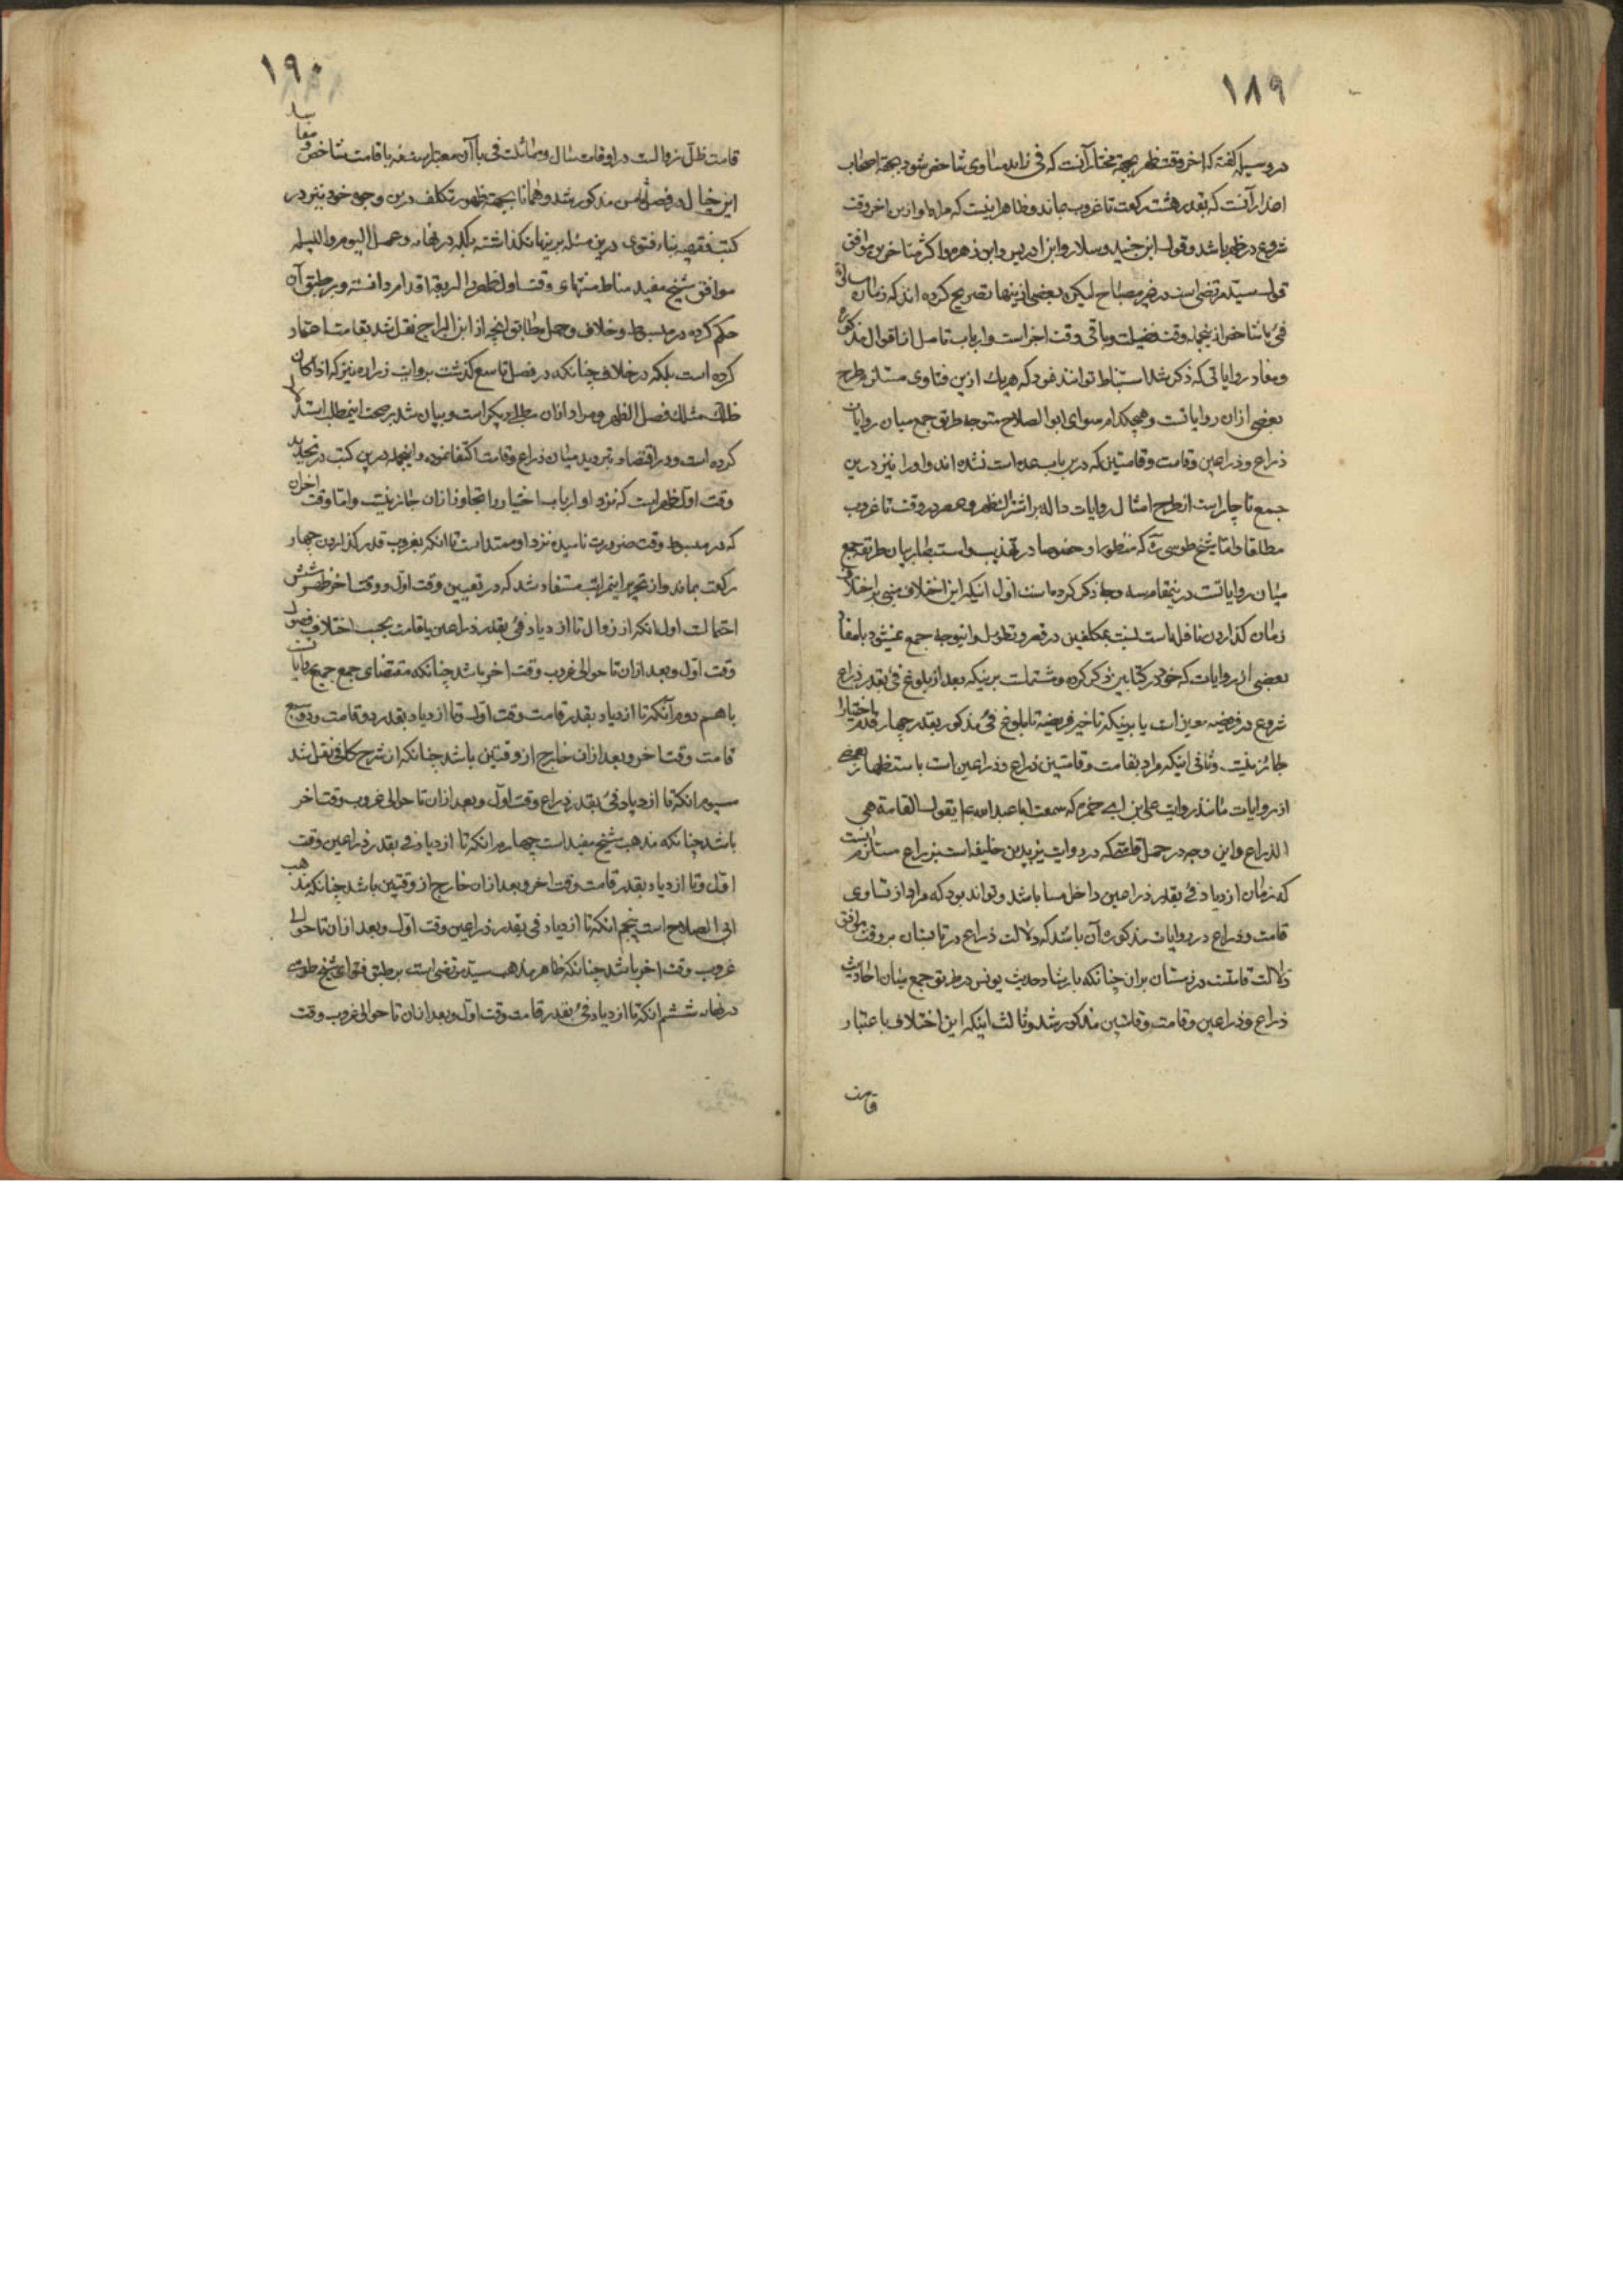 ۱۸۹
در وسیله گفته که اخر وقت ظهر بجهة مختار آنست که فی زاید مساوی شاخص شود و بجهة اصحاب
اعذار آنست که بقدر هشت رکعت تا غروب بماند و ظاهر اینست که مراد او ازین اخر وقت
شروع در ظهر باشد و قول ابن جنید و سلار و ابن ادریس و ابن زهره و اکثر متاخرین موافق
قول سید مرتضی است در غیر مصباح لیکن بعضی ازینها تصریح کرده اند که زمان مساواة
فئ با شاخص ازینجمله وقت فضیلت و باقی وقت اجزا است و ارباب تامل از اقوال مذکوره
و مفاد روایاتی که ذکر شد استنباط توانند نمود که هر یک ازین فتاوی مستلزم طرح
بعضی ازان روایاتست و هیچکدام سوای ابو الصلاح متوجه طریق جمع میان روایات
ذراع و ذراعین و قامت و قامتین که درین باب عمده است نشده اند و او را نیز درین
جمع ناچار است از طرح امثال روایات داله بر اشتراک ظهر و عصر در وقت تا غروب
مطلقا و اما شیخ طوسی ره که منظور او خصوصا در تهذیب و استبصار بیان طریقه جمع
میان روایاتست درینمقام سه وجه ذکر کرده است اول اینکه این اختلاف مبنی بر اختلاف
زمان گذاردن نافله است نسبت بمکلفین در قصر و تطویل و اینوجه جمع نمیشود با مفاد
بعضی از روایات که خود در کتابین ذکر کرده و مشتملست برینکه بعد از بلوغ فئ بقدر ذراع
شروع در فریضه معین است یا برینکه تاخیر فریضه تا بلوغ فئ مذکور بقدر چهار قدم باختیار
جائز نیست و ثانی اینکه مراد بقامت و قامتین ذراع و ذراعین است باستظهار بعضی
از روایات مانند روایت علی بن ابی حمزه که سمعت ابا عبد الله ع یقول القامة هی
الذراع و این وجه در حمل قامتی که در روایت یزید بن خلیفه است بذراع مستلزم آنست
که زمان ازدیاد فئ بقدر ذراعین داخل مسا باشد و تواند بود که مراد از تساوی
قامت و ذراع در روایات مذکوره آن باشد که دلالت ذراع در تابستان بر وقت موافق
دلالت قامتست در زمستان بران چنانکه بارشاد حدیث یونس در طریق جمع میان احادیث
ذراع و ذراعین و قامت و قامتین مذکور شد و ثالث اینکه این اختلاف باعتبار
قامت
۱۹۰
قامت ظل زوالست در اوقات سال و مماثلت فی با آن معتبرست نه با قامت شاخص و مفاسد
این خیال در فصل ثامن مذکور شد و همانا بجهت ظهور تکلف درین وجوه خود نیز در
کتب فقهیه بناء فتوی درین مسئله برینها نگذاشته بلکه در نهایه و عمل الیوم و اللیله
موافق شیخ مفید مناط منتهای وقت اول ظهر را اربعة اقدام دانسته و بر طبق آن
حکم کرده در مبسوط و خلاف و جمل مطابق انچه از ابن البراج نقل شد بقامت اعتماد
کرده است بلکه در خلاف چنانکه در فصل تاسع گذشت بروایت زراره نیز که اذا کان
ظلک مثلک فصل الظهر و مراد ازان مطلب دیگر است و بیان شد بر صحت اینمطلب استدلال
کرده است و در اقتصاد بتردید میان ذراع و قامت اکتفا نموده و اینجمله درین کتب در تحدید
وقت اول ظهر است که نزد او ارباب اختیار را تجاوز ازان جائز نیست و اما وقت اخران
که در مبسوط وقت ضرورت نامیده نزد او ممتد است تا انکه بغروب قدر گذاردن چهار
رکعت بماند و از تحریر اینمراتب مستفاد شد که در تعیین وقت اول و وقت اخر ظهر شش
احتمالست اول انکه از زوال تا ازدیاد فئ بقدر ذراعین یا قامت بحسب اختلاف فصول
وقت اول و بعد ازان تا حوالی غروب وقت اخر باشد چنانکه مقتضای جمع جمیع روایات
با هم دوم آنکه تا ازدیاد بقدر قامت وقت اول و تا ازدیاد بقدر دو قامت و دو سبع
قامت وقت اخر و بعد ازان خارج از وقتین باشد چنانکه از شرح کافی نقل شد
سیوم انکه تا ازدیاد فئ بقدر ذراع وقت اول و بعد ازان تا حوالی غروب وقت اخر
باشد چنانکه مذهب شیخ مفید است چهارم انکه تا ازدیاد فی بقدر ذراعین وقت
اول و تا ازدیاد بقدر قامت وقت اخر و بعد ازان خارج از وقتین باشد چنانکه مذهب
ابی الصلاح است پنجم انکه تا ازدیاد فی بقدر ذراعین وقت اول و بعد ازان تا حوالی
غروب وقت اخر باشد چنانکه ظاهر مذهب سید مرتضی است بر طبق فتوای شیخ طوسی
در نهایه ششم انکه تا ازدیاد فئ بقدر قامت وقت اول و بعد ازان تا حوالی غروب وقت